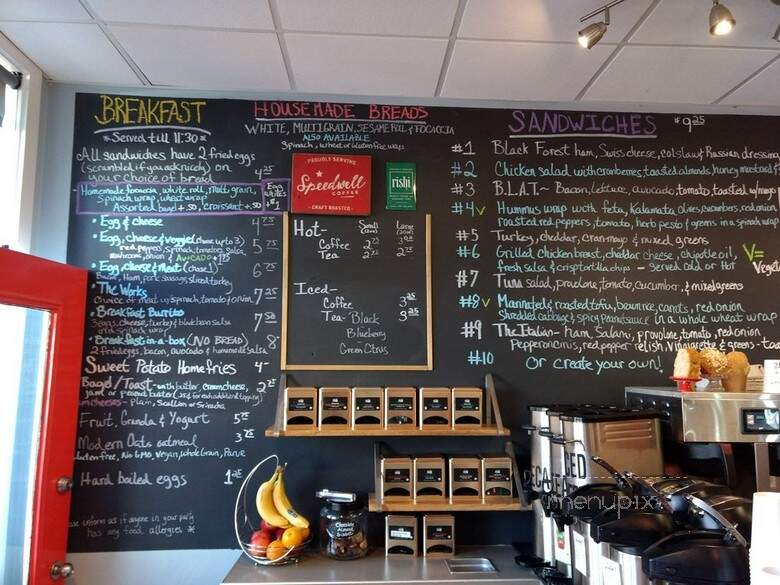 BREAKFAST
*Served till 11:30*
All sandwiches have 2 fried eggs
(scrambled if you ask nicely) on
your choice of bread
Homemade focaccia, white roll, multi grain,
Spinach wrap, wheat wrap
Assorted bowl +.50, croissant +.50
Egg
whites
• Egg & cheese
• Egg, cheese & Veggie (choose up to 3)
red peppers, spinach, tomatoes, salsa,
mushroom, onion & AVCADO +1
5 75
• Egg, cheese & Meat (choose 1)
Bacon, Ham, pork sausage, sliced turkey
6 75
• The Works
Choice of meat w/ spinach, tomato & onion
7 25
• Breakfast Burrito
3 eggs, cheese, turkey & black bean salsa
7 50
• Breakfast-in-a-box (NO BREAD)
2 fried eggs, bacon, avocado & homemade salsa
8
Sweet Potato Homefries 4-
Bagel/Toast - with butter, cream cheese,
jam or peanut butter
cheeses - Plain, Scallion or Sriracha
Fruit, Granola & Yogurt 5 75
Modern Oats oatmeal 3 75
gluten free, No GMO, vegan, whole grain, Parve
Hard boiled eggs 1 25
inform us if anyone in your party
has any food allergies *
HOUSEMADE BREADS
WHITE, MULTIGRAIN, SESAME ROLL & FOCACCIA
ALSO AVAILABLE
Spinach, wheat or gluten free wraps
PROUDLY SERVING
Speedwell
COFFEE
- CRAFT ROASTED -
rishi
Hot- Small Large
Coffee
Tea
Iced-
Coffee
Tea- Black
Blueberry
Green Citrus
SANDWICHES $9 25
#1 Black Forest ham, Swiss cheese, coleslaw & Russian dressing
#2 Chicken salad with cranberries, toasted almonds, honey mustard
#3 B.L.A.T ~ Bacon, lettuce, avocado, tomato, toasted w/ mayo
#4 ✓ Hummus wrap with feta, Kalamata olives, cucumbers, red onion
roasted red peppers, tomato, herb pesto & greens in a spinach wrap
#5 Turkey, cheddar, cran-mayo & mixed greens
#6 Grilled chicken breast, cheddar cheese, chipotle aioli,
fresh salsa & crisp tortilla chips - served cold or hot
V=
Veget
#7 Tuna salad, provolone, tomato, cucumber, & mixed greens
#8 ✓ Marinated & roasted tofu, brown rice, carrots, red onion
Shredded cabbage & spicy peanut sauce in a whole wheat wrap
#9 The Italian - ham, Salami, provolone, tomato, red onion
Pepperoncini, red pepper relish, Vinaigrette & greens - toa
#10 Or create your own!
Chocolate
Almond
DECA
ICED
menupix